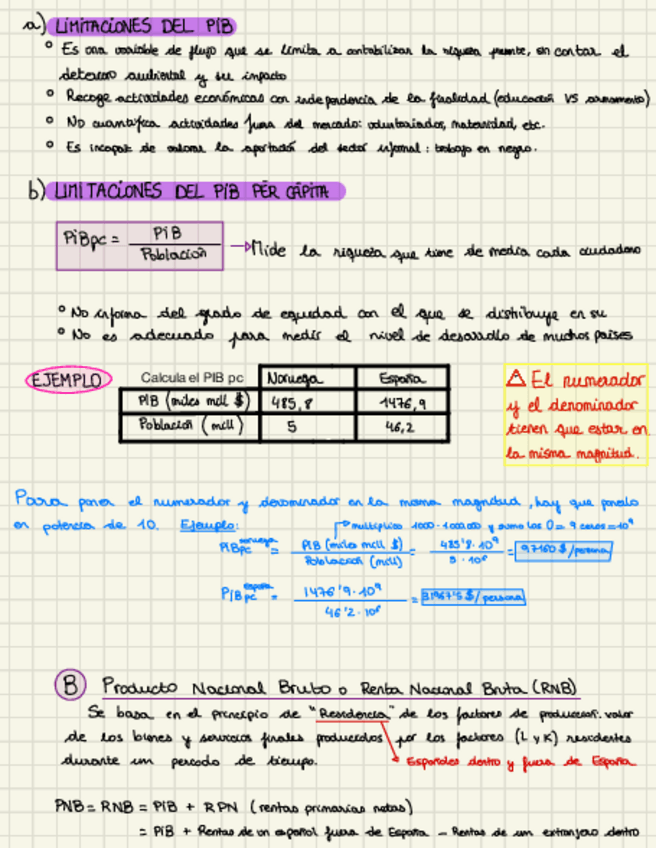 a) LIMITACIONES DEL PIB
° Es una variable de flujo que se limita a contabilizar la riqueza presente, sin contar el
deterioro ambiental y su impacto
° Recoge actividades económicas con independencia de la finalidad (educación VS armamento)
° No cuantifica actividades fuera del mercado: voluntariados, maternidad, etc.
° Es incapaz de valorar la aportación del sector informal: trabajo en negro.
b) LIMITACIONES DEL PIB PER CÁPITA
PIBpc = PIB / Población → Mide la riqueza que tiene de media cada ciudadano
° No informa del grado de equidad con el que se distribuye en su
° No es adecuado para medir el nivel de desarrollo de muchos países
EJEMPLO Calcula el PIB pc Noruega España
PIB (miles mill $) 485,8 1476,9
Población (mill) 5 46,2
⚠ El numerador
y el denominador
tienen que estar en
la misma magnitud.
Para poner el numerador y denominador en la misma magnitud, hay que ponerlo
en potencia de 10. Ejemplo:
multiplico 1000 · 1000.000 y sumo los 0 = 9 ceros = 10⁹
PIBpc noruega = PIB (miles mill $) / Población (mill) = 485'8 · 10⁹ / 5 · 10⁶ = 97160 $/persona
PIBpc españa = 1476'9 · 10⁹ / 46'2 · 10⁶ = $/persona
B Producto Nacional Bruto o Renta Nacional Bruta (RNB)
Se basa en el principio de "Residencia" de los factores de producción: valor
de los bienes y servicios finales producidos por los factores (L y K) residentes
durante un periodo de tiempo.
Españoles dentro y fuera de España
PNB = RNB = PIB + RPN (rentas primarias netas)
= PIB + Rentas de un español fuera de España - Rentas de un extranjero dentro